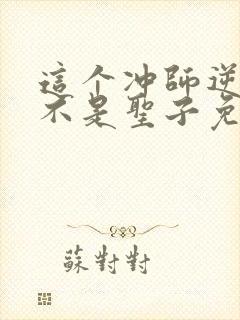 這个冲師逆
不是聖子免
蘇對對